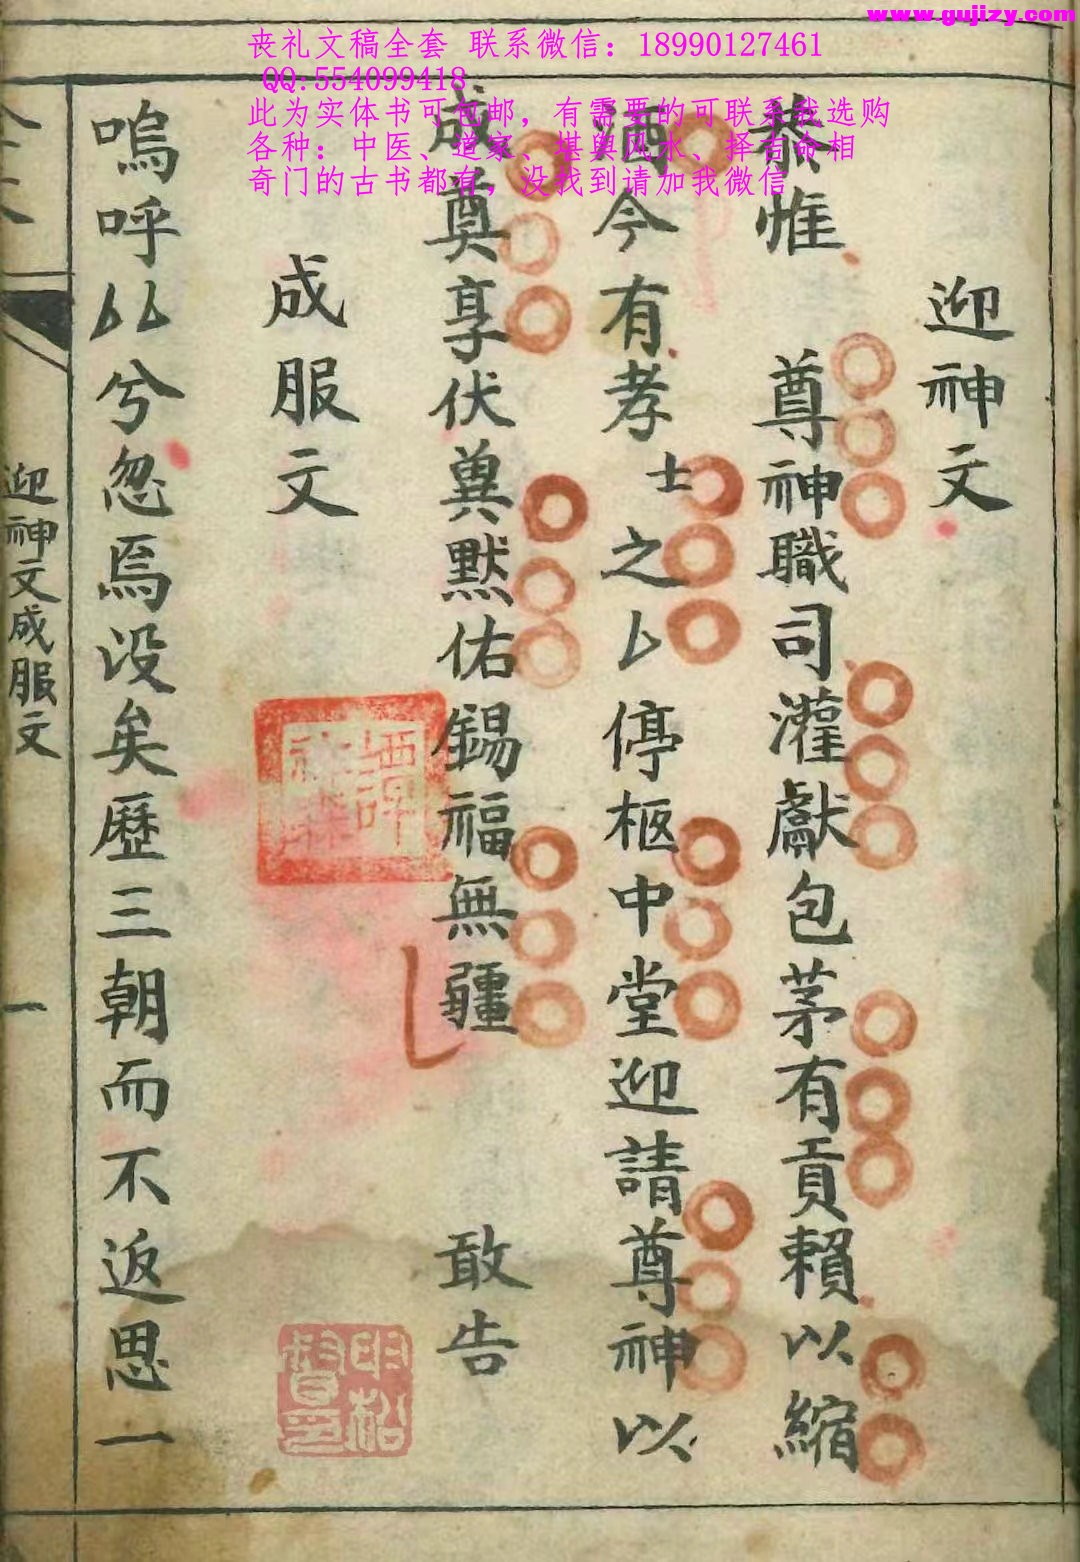 www.gujizy.com
丧礼文稿全套 联系微信: 18990127461
QQ:554099418
此为实体书可包邮，有需要的可联系我选购
各种：中医、道家、堪舆风水、择吉命相
奇门的古书都有，没找到请加我微信
迎神文
恭惟 尊神職司灌獻包茅有貢賴以縮
酒今有孝士之卜停柩中堂迎請尊神以
成奠享伏冀默佑錫福無疆 敢告
成服文
嗚呼厶厶兮忽焉沒矣歷三朝而不返思一
迎神文成服文
一